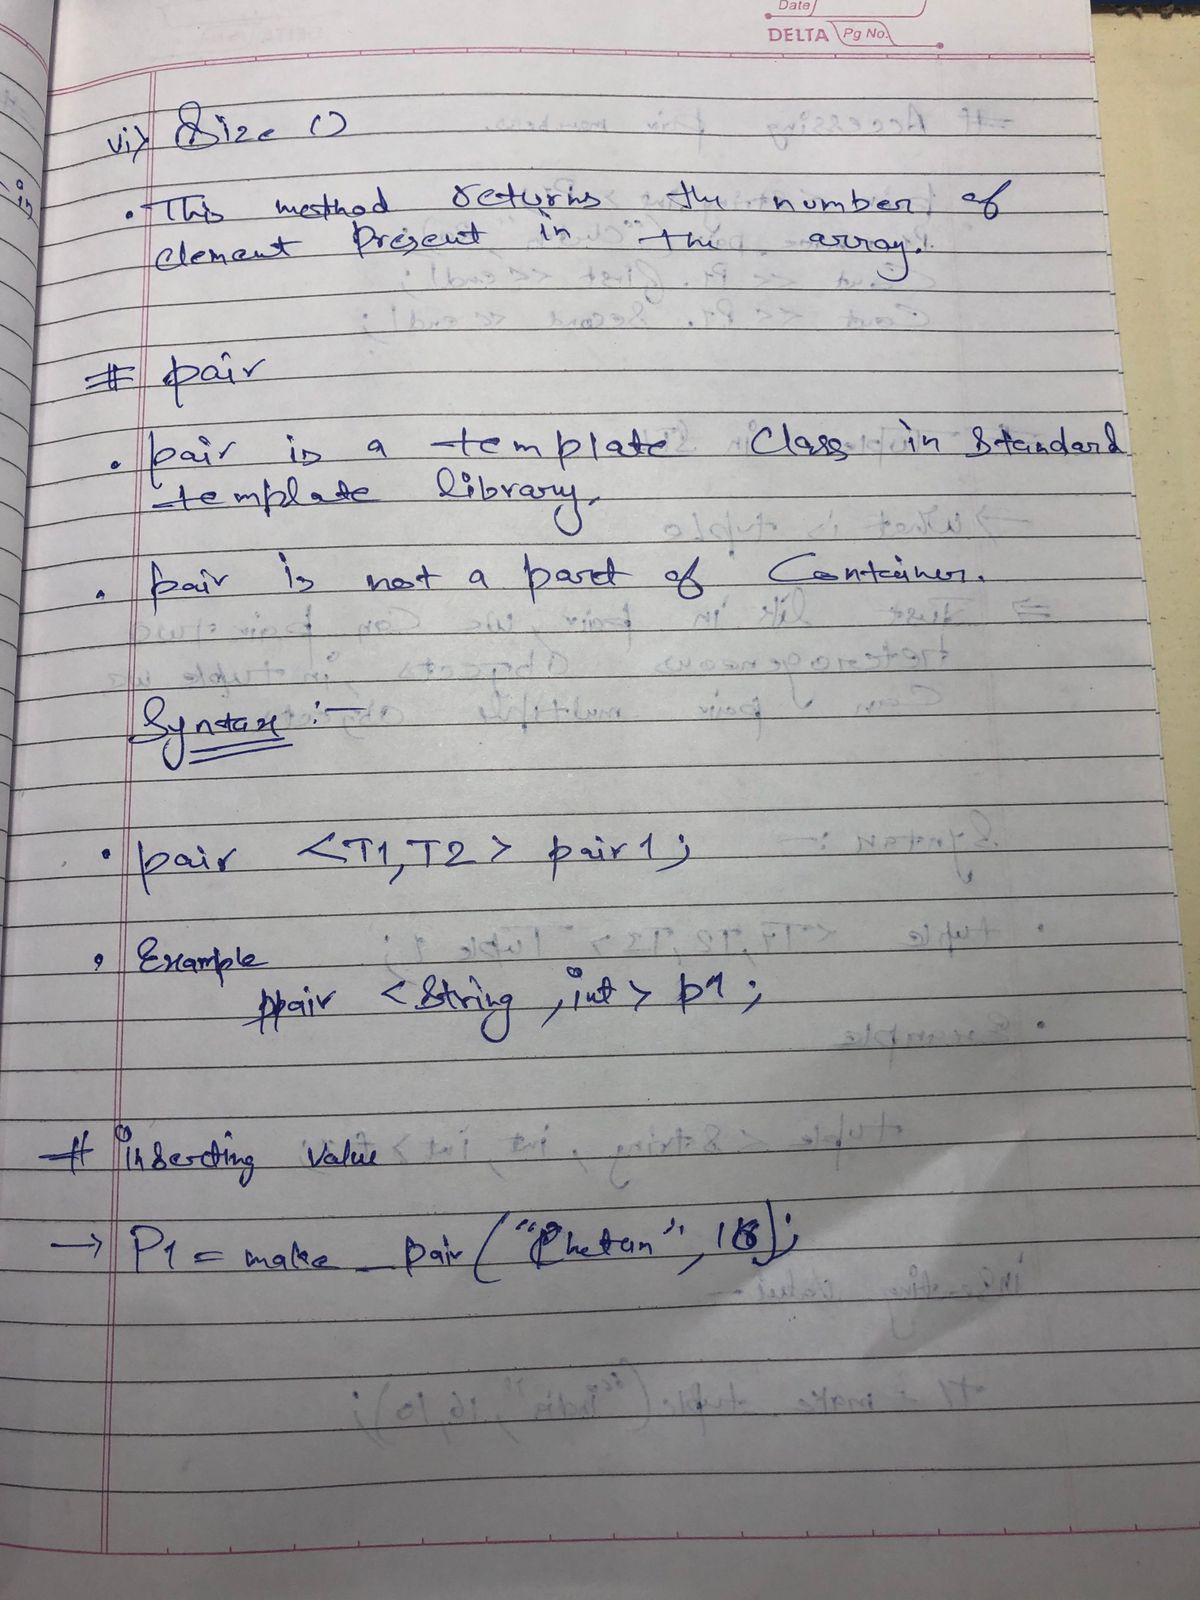 Date
DELTA Pg No.
vi) Size ()
• This method returns the number of
element present in the array.
# pair
• pair is a template Class in Standard
template library.
• pair is not a part of Container.
Syntax :-
• pair <T1, T2> pair1;
• Example
pair <String, int> p1;
# inserting value
→ P1 = make_pair("Chetan", 16);